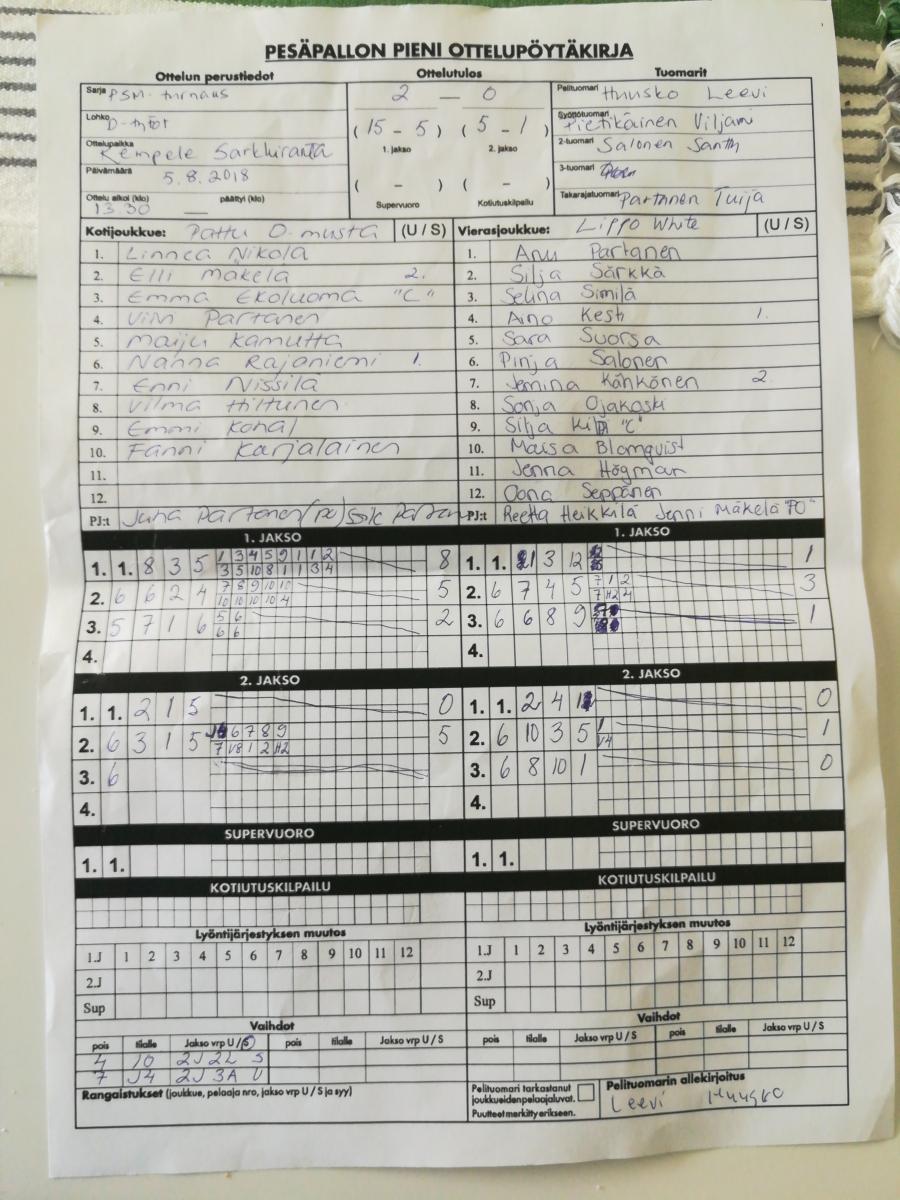 PESÄPALLON PIENI OTTELUPÖYTÄKIRJA
Ottelun perustiedot Ottelutulos Tuomarit
Sarja PSM-turnaus 2 – 0 Pelituomari Huusko Leevi
Lohko D-tytöt (15 – 5) (5 – 1) Syöttötuomari Pietikäinen Viljami
Ottelupaikka Kempele Sarkkiranta 1. jakso 2. jakso 2-tuomari Salonen Santtu
Päivämäärä 5.8.2018 ( – ) ( – ) 3-tuomari
Ottelu alkoi (klo) 13.30 päättyi (klo) — Supervuoro Kotiutuskilpailu Takarajatuomari Partanen Tuija
Kotijoukkue: Pattu D-musta (U / S) Vierasjoukkue: Lippo White (U / S)
1. Linnea Nikola 1. Anu Partanen
2. Elli Mäkelä 2. 2. Silja Särkkä
3. Emma Ekoluoma "C" 3. Selina Similä
4. Vilvi Partanen 4. Aino Kesti 1.
5. Maiju Kamutta 5. Sara Suorsa
6. Nanna Rajaniemi 1. 6. Pinja Salonen
7. Enni Nissilä 7. Jemina Känkönen 2.
8. Vilma Hiltunen 8. Sonja Ojakoski
9. Emmi 9. Silja "C"
10. Fanni Karjalainen 10. Maisa Blomqvist
11. 11. Jenna Högman
12. 12. Oona Seppänen
PJ:t Juha Partanen (po) Partanen PJ:t Reetta Heikkilä Jenni Mäkelä "PO"
1. JAKSO 1. JAKSO
1. 1. 8 3 5 1 3 4 5 9 1 1 2 8 1. 1. 3 12 1
3 5 10 8 1 1 3 4
2. 6 6 2 4 7 8 9 10 10 5 2. 6 7 4 5 7 1 2 3
10 10 10 10 4 7 H2 4
3. 5 7 1 6 5 6 2 3. 6 6 8 9 1
6 6
4. 4.
2. JAKSO 2. JAKSO
1. 1. 2 1 5 0 1. 1. 2 4 0
2. 6 3 1 5 6 7 8 9 5 2. 6 10 3 5 1 1
7 V8 1 2 H2 V4
3. 6 3. 6 8 10 1 0
4. 4.
SUPERVUORO SUPERVUORO
1. 1. 1. 1.
KOTIUTUSKILPAILU KOTIUTUSKILPAILU
Lyöntijärjestyksen muutos Lyöntijärjestyksen muutos
1.J 1 2 3 4 5 6 7 8 9 10 11 12 1.J 1 2 3 4 5 6 7 8 9 10 11 12
2.J 2.J
Sup Sup
Vaihdot Vaihdot
pois tilalle Jakso vrp U / S pois tilalle Jakso vrp U / S pois tilalle Jakso vrp U / S pois tilalle Jakso vrp U / S
4 10 2J 2L S
7 J4 2J 3A U
Rangaistukset (joukkue, pelaaja nro, jakso vrp U / S ja syy) Pelituomari tarkastanut joukkueidenpelaajaluvat. Puutteet merkitty erikseen. Pelituomarin allekirjoitus
Leevi Huusko